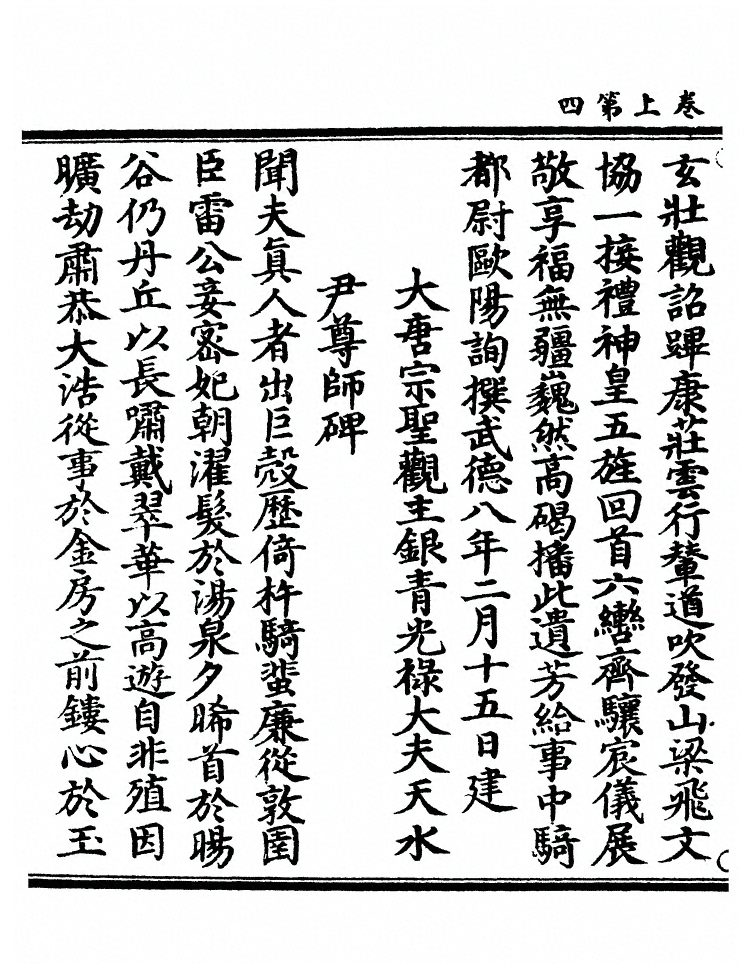 卷上第四
玄壯觀詔蹕康莊雲行輦道吹發山梁飛文
協一接禮神皇五旌回首六轡齊驤宸儀展
敬享福無疆巍然高碣播此遺芳給事中騎
都尉歐陽詢撰武德八年二月十五日建
大唐宗聖觀主銀青光祿大夫天水
尹尊師碑
聞夫眞人者出巨殼歷倚杵騎蜚廉從敦圄
臣雷公妾宓妃朝濯髮於湯泉夕晞首於暘
谷仍丹丘以長嘯戴翠華以高遊自非殖因
曠劫肅恭大浩從事於金房之前鏤心於玉